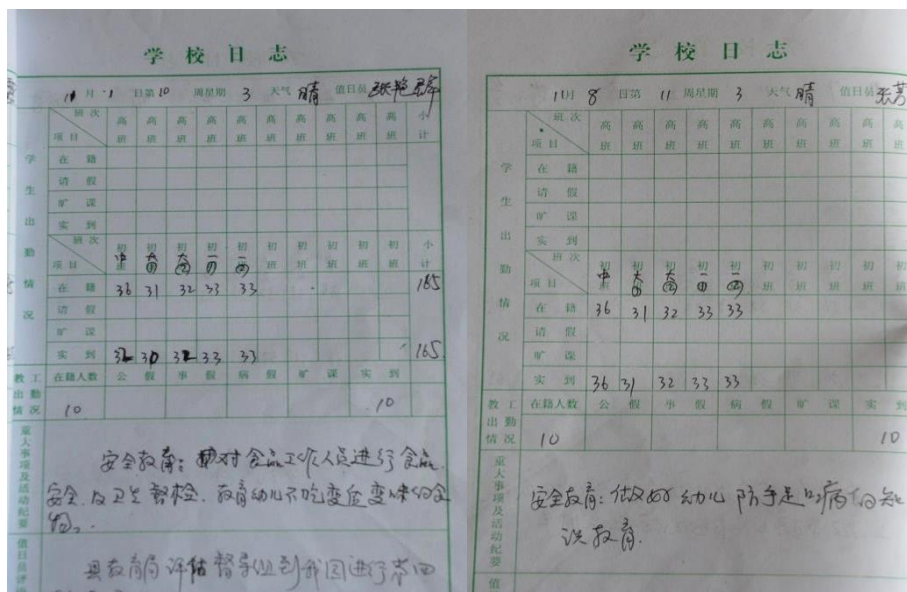 学校日志
11月1日第10周星期3天气晴值日员
班次 高班 高班 高班 高班 高班 高班 高班 高班 高班 高班 小计
项目
学生出勤情况
在籍
请假
旷课
实到
班次 初中班 初 初 初一 初一 初班 初班 初班 初班 初班 小计
项目
在籍 36 31 32 33 33 165
请假
旷课
实到 30 33 33 165
教工出勤情况 在籍人数 公假 事假 病假 旷课 实到
10 10
重大事项及活动纪要
安全教育：对食品工作人员进行食品
安全及卫生督检．教育幼儿不吃变质变味的食
物。
值日员评
县教育局评估督导组到我园进行
学校日志
11月8日第11周星期3天气晴值日员张芳
班次 高班 高班 高班 高班 高班 高班 高班 高班 高班 高
项目
学生出勤情况
在籍
请假
旷课
实到
班次 初中班 初大 初大 初一 初一 初班 初班 初班 初班 初
项目
在籍 36 31 32 33 33
请假
旷课
实到 36 31 32 33 33
教工出勤情况 在籍人数 公假 事假 病假 旷课 实到
10 10
重大事项及活动纪要
安全教育：做好幼儿防手足口病的知
识教育．
值